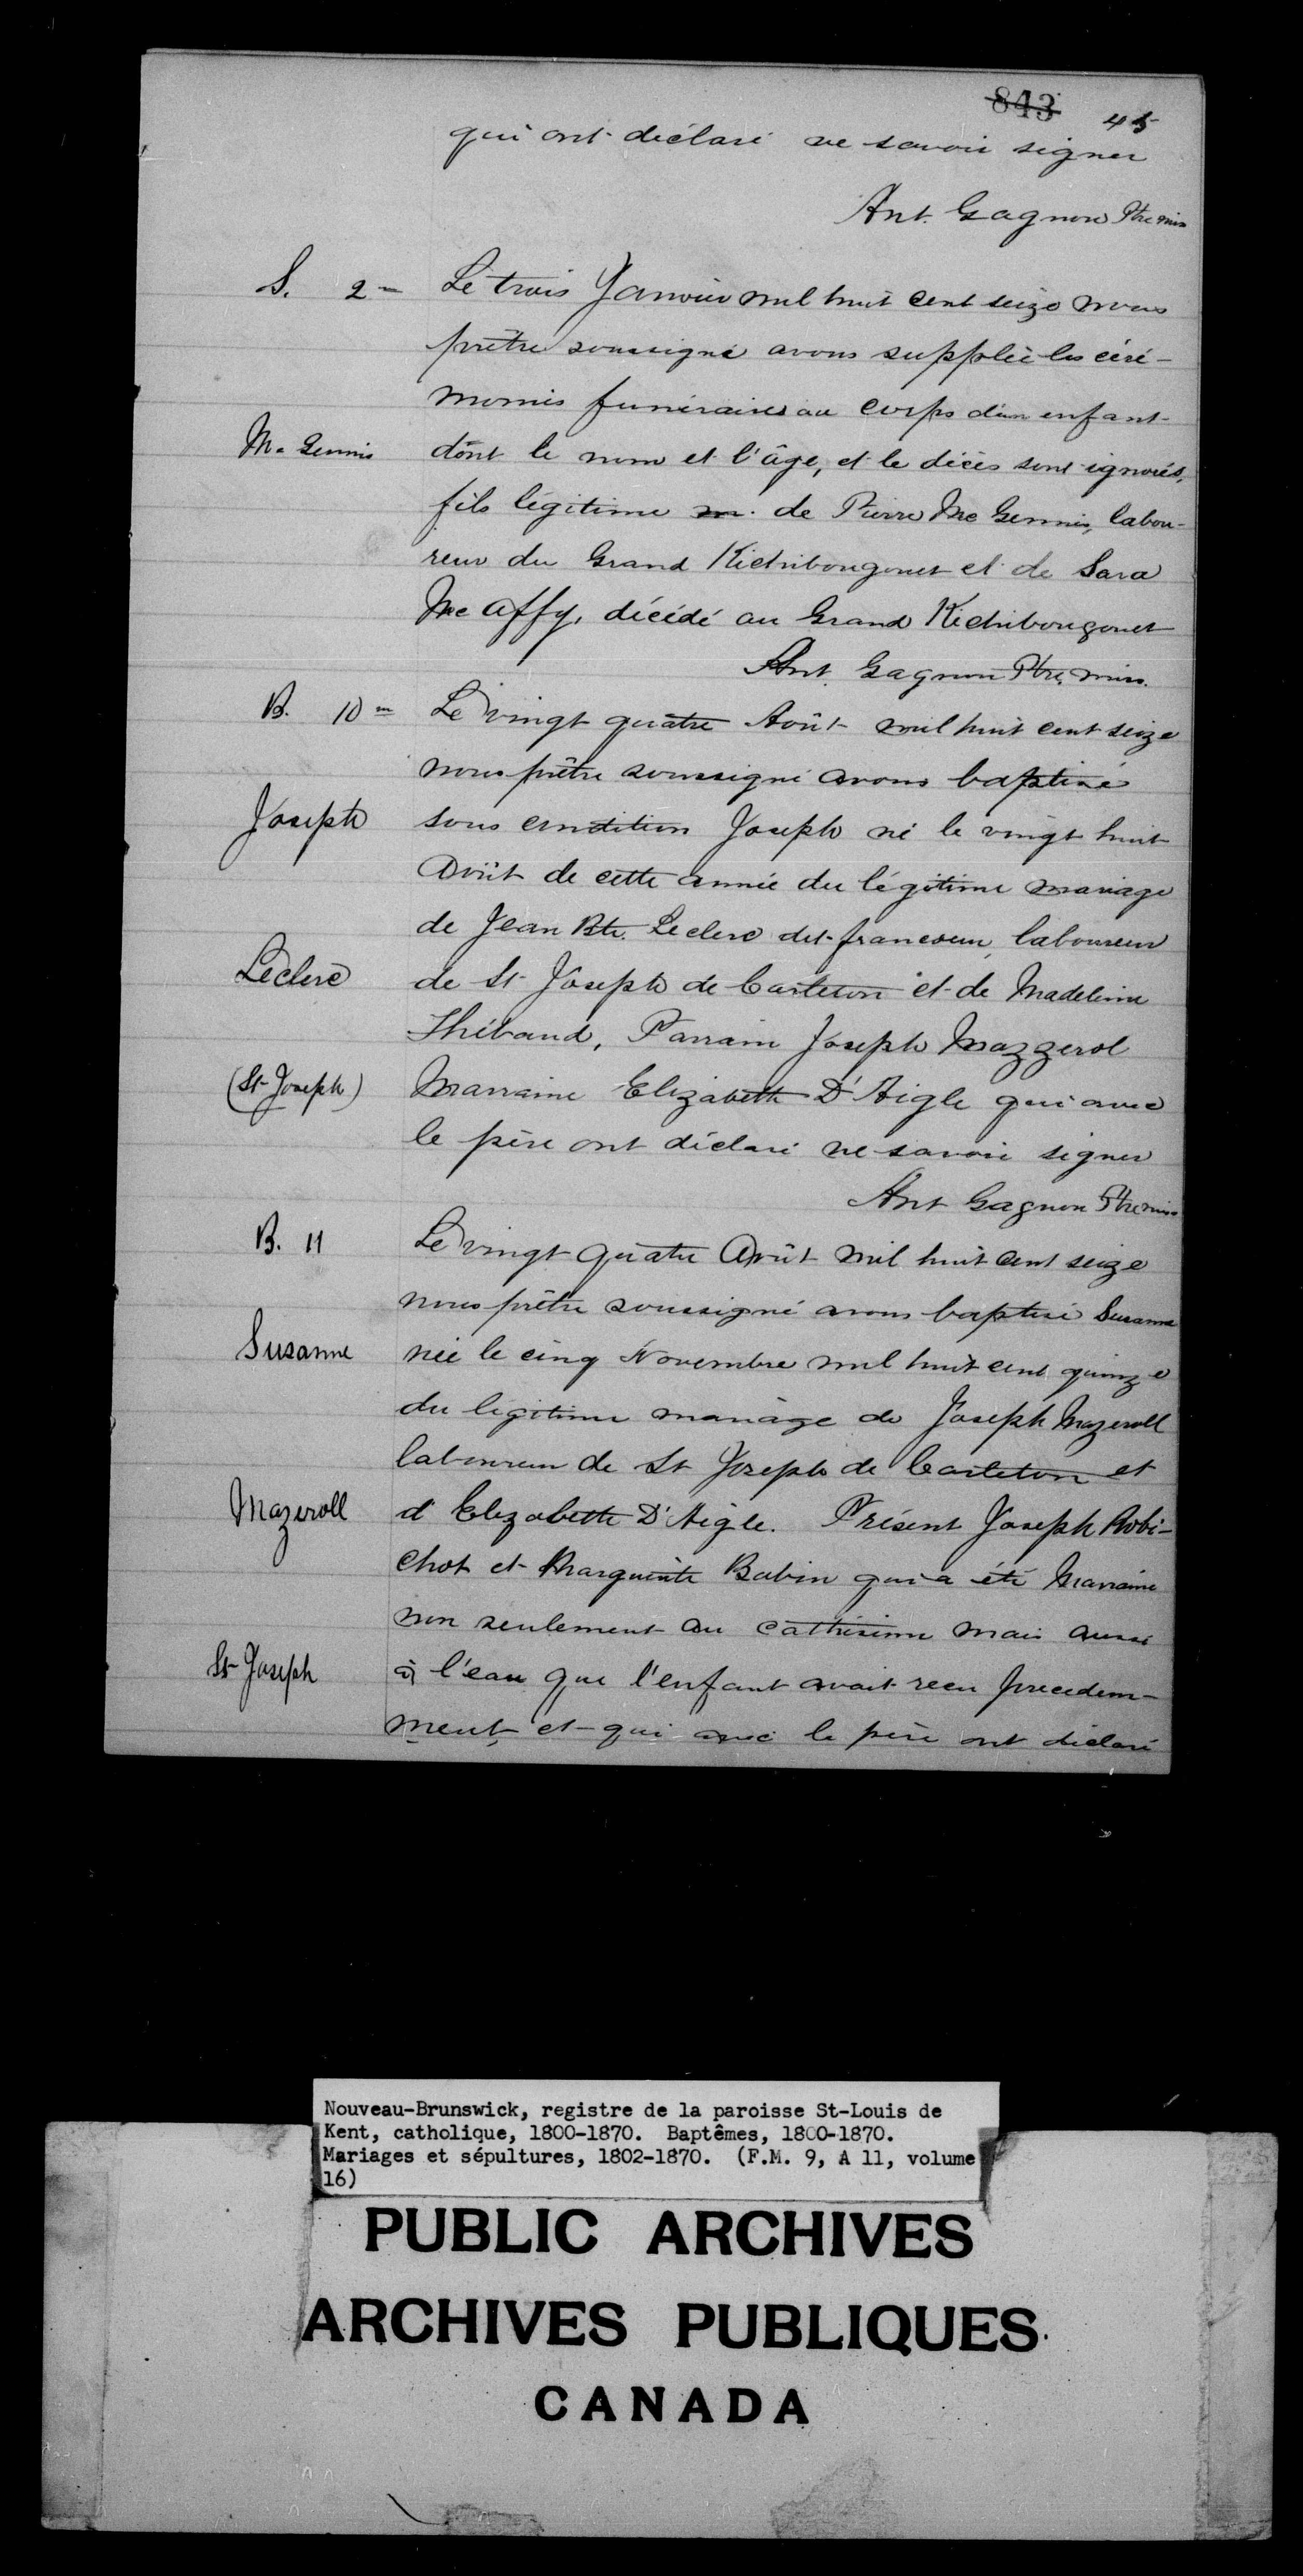 843 45
qui ont déclaré ne savoir signer
Ant. Gagnon Ptre mis
S. 2 - Le trois Janvier mil huit cent seize nous
prêtre soussigné avons supplée les céré-
monies funéraires au corps d'un enfant
Mc Gennis dont le nom et l'âge, et le décès sont ignorés,
fils légitime m. de Pierre Mc Gennis, labou-
reur du Grand Kichibougouet et de Sara
Mc Affy, décédé au Grand Kichibougouet
Ant. Gagnon Ptre, miss.
B. 10m Le vingt quatre Août mil huit cent seize
nous prêtre soussigné avons baptisé
Joseph sous condition Joseph né le vingt huit
Août de cette année du légitime mariage
de Jean Bte. Leclerc dit francoeur, laboureur
Leclerc de St Joseph de Carleton et de Madeleine
Thibaud, Parrain Joseph Mazzerol
(St-Joseph) Marraine Elizabeth D'Aigle qui avec
le père ont déclaré ne savoir signer
Ant Gagnon Ptre miss
B. 11 Le vingt quatre Août mil huit cent seize
nous prêtre soussigné avons baptisé Susanne
Susanne née le cinq Novembre mil huit cent quinze
du légitime mariage de Joseph Mazeroll
laboureur de St Joseph de Carleton et
Mazeroll d'Elizabeth D'Aigle. Présent Joseph Robi-
chot et Marguerite Babin qui a été Marraine
non seulement au cathésime mais aussi
St-Joseph à l'eau que l'enfant avait recu precedem-
ment, et qui avec le père ont déclaré
Nouveau-Brunswick, registre de la paroisse St-Louis de
Kent, catholique, 1800-1870. Baptêmes, 1800-1870.
Mariages et sépultures, 1802-1870. (F.M. 9, A 11, volume
16)
PUBLIC ARCHIVES
ARCHIVES PUBLIQUES
CANADA